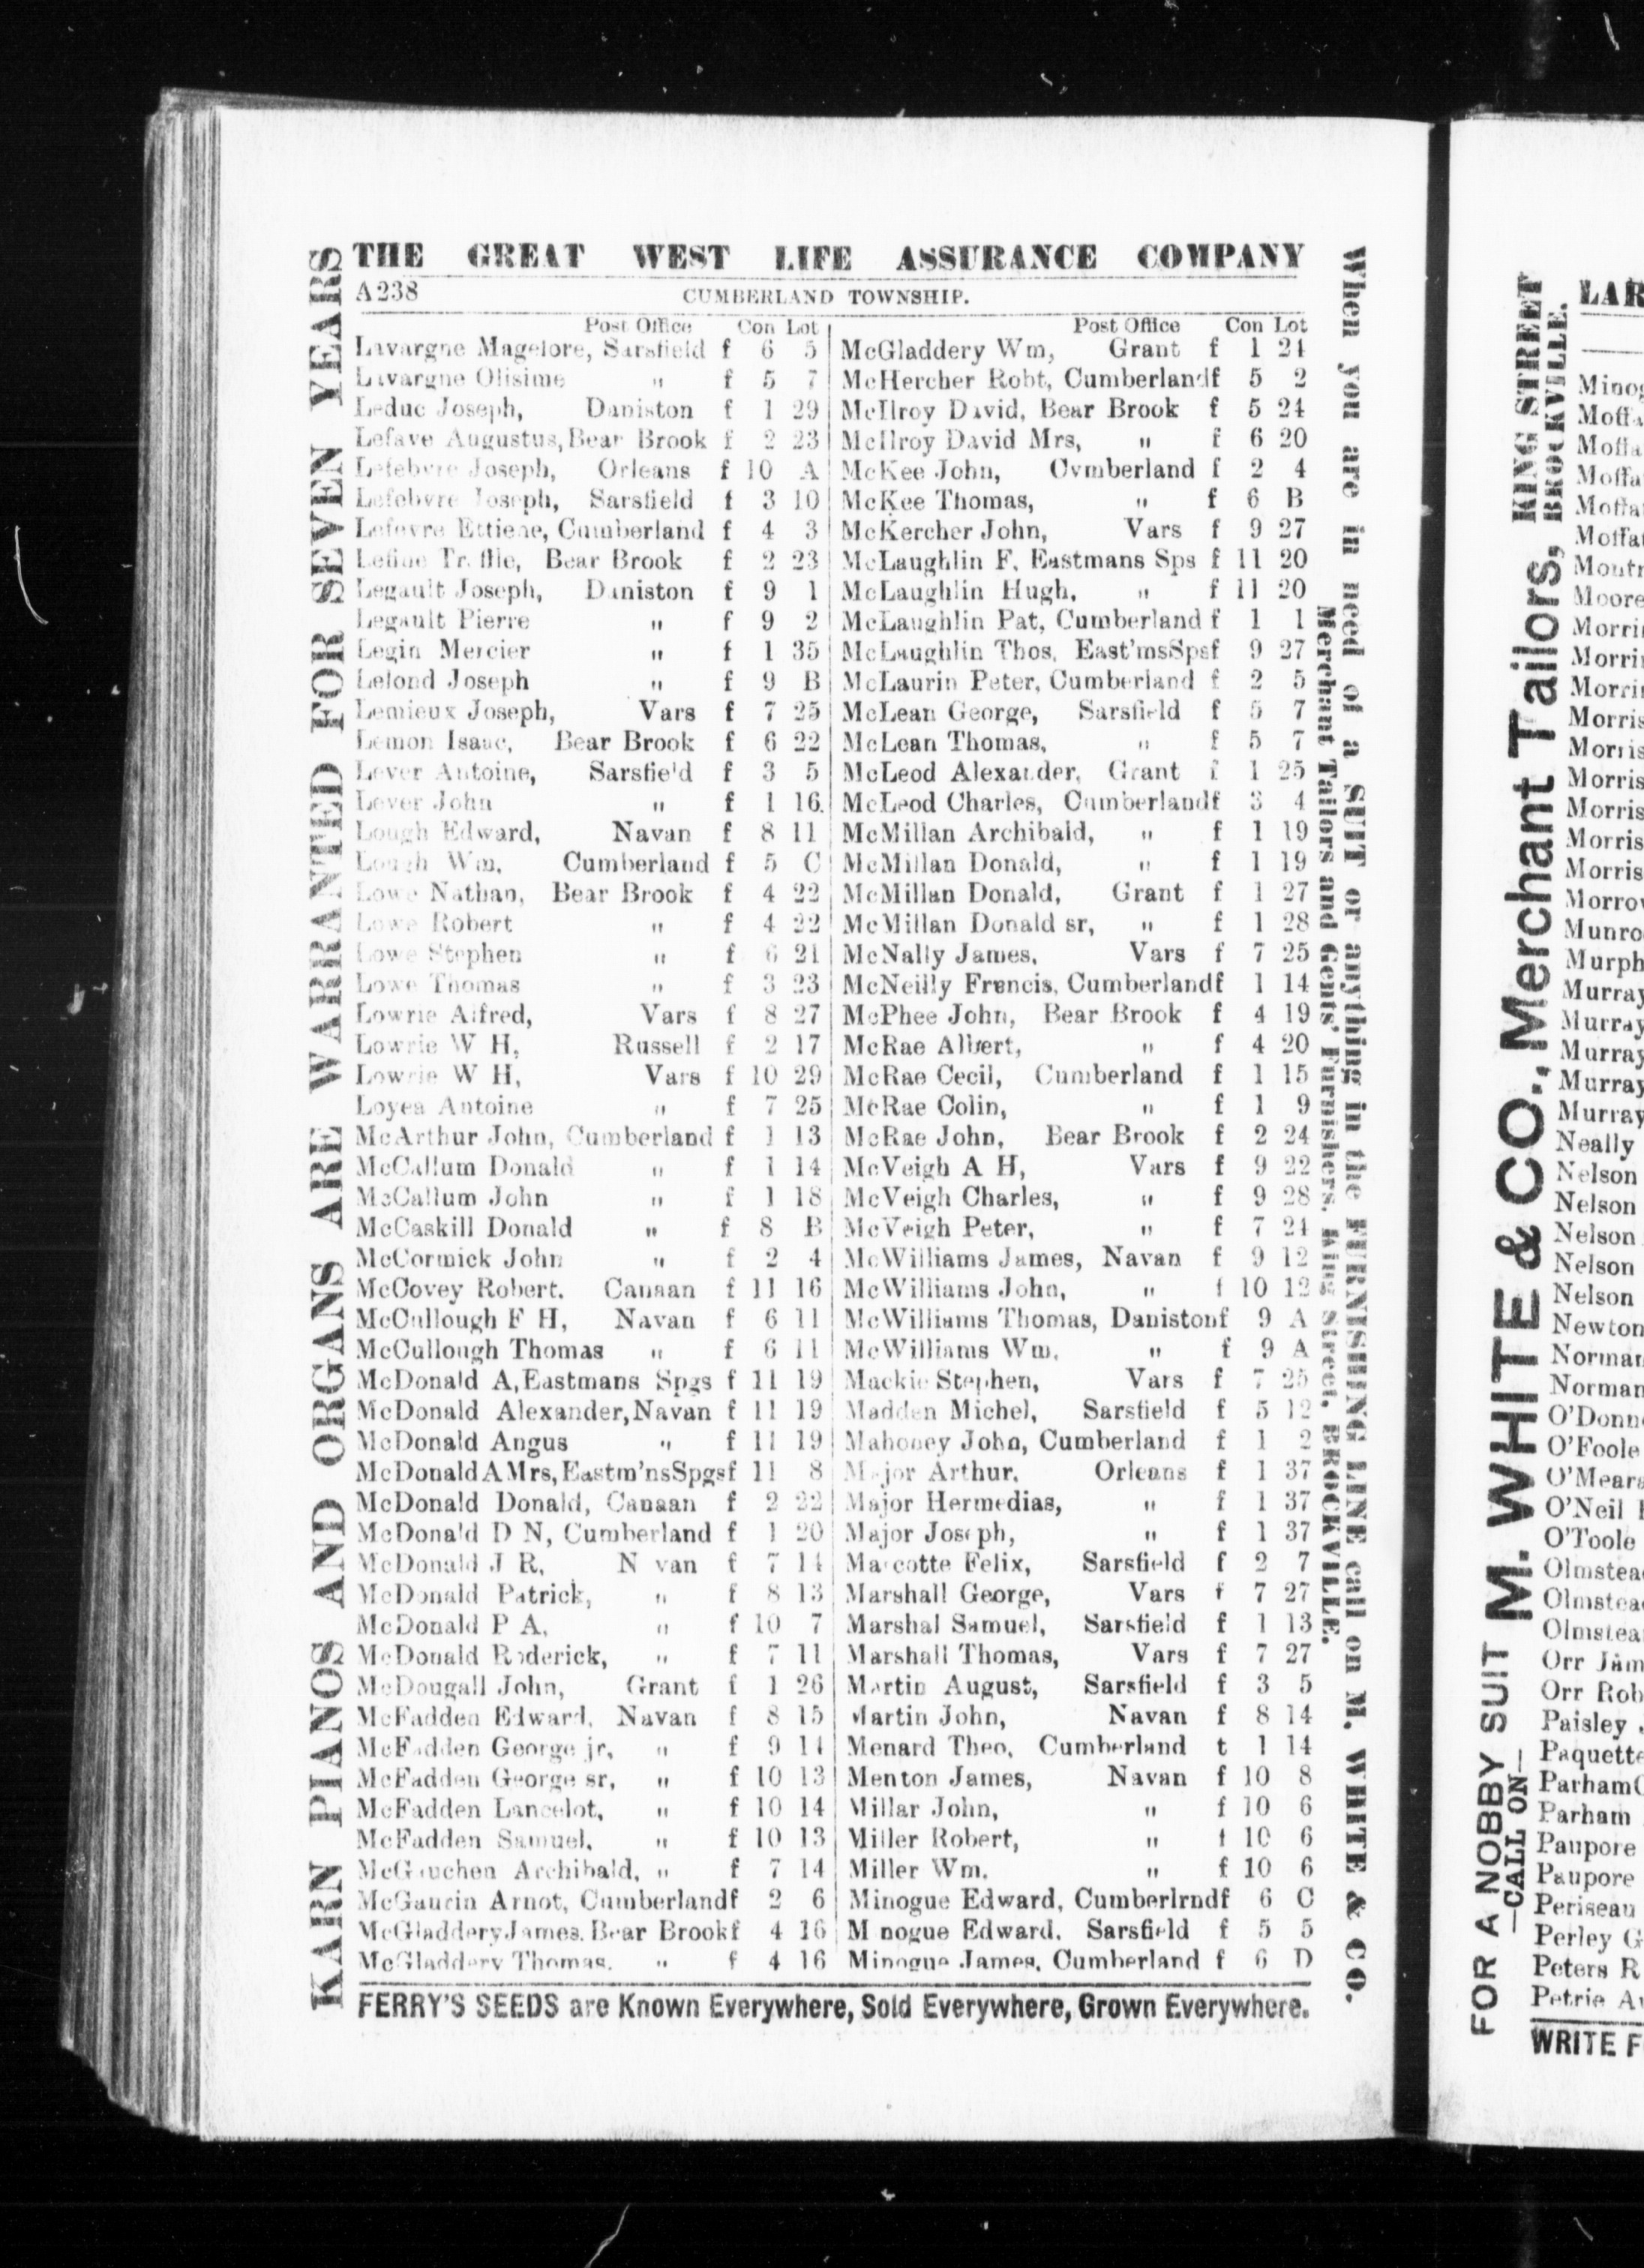 THE GREAT WEST LIFE ASSURANCE COMPANY
A238 CUMBERLAND TOWNSHIP.
Post Office Con Lot
Lavargne Magelore, Sarsfield f 6 5
Lavargne Olisime " f 5 7
Leduc Joseph, Daniston f 1 29
Lefave Augustus, Bear Brook f 2 23
Lefebvre Joseph, Orleans f 10 A
Lefebvre Joseph, Sarsfield f 3 10
Lefevre Ettiene, Cumberland f 4 3
Bear Brook f 2 23
Legault Joseph, Daniston f 9 1
Legault Pierre " f 9 2
Legin Mercier " f 1 35
Lelond Joseph " f 9 B
Lemieux Joseph, Vars f 7 25
Lemon Isaac, Bear Brook f 6 22
Lever Antoine, Sarsfield f 3 5
Lever John " f 1 16
Lough Edward, Navan f 8 11
Lough Wm, Cumberland f 5 C
Lowe Nathan, Bear Brook f 4 22
Lowe Robert " f 4 22
Lowe Stephen " f 6 21
Lowe Thomas " f 3 23
Lowrie Alfred, Vars f 8 27
Lowrie W H, Russell f 2 17
Lowrie W H, Vars f 10 29
Loyea Antoine " f 7 25
McArthur John, Cumberland f 1 13
McCallum Donald " f 1 14
McCallum John " f 1 18
McCaskill Donald " f 8 B
McCormick John " f 2 4
McCovey Robert. Canaan f 11 16
McCullough F H, Navan f 6 11
McCullough Thomas " f 6 11
McDonald A, Eastmans Spgs f 11 19
McDonald Alexander, Navan f 11 19
McDonald Angus " f 11 19
McDonald A Mrs, Eastm'nsSpgsf 11 8
McDonald Donald, Canaan f 2 22
McDonald D N, Cumberland f 1 20
McDonald J R, N van f 7 14
McDonald Patrick, " f 8 13
McDonald P A, " f 10 7
McDonald Roderick, " f 7 11
McDougall John, Grant f 1 26
McFadden Edward, Navan f 8 15
McFadden George jr, " f 9 14
McFadden George sr, " f 10 13
McFadden Lancelot, " f 10 14
McFadden Samuel, " f 10 13
McGauchen Archibald, " f 7 14
McGaurin Arnot, Cumberlandf 2 6
McGladdery James. Bear Brookf 4 16
McGladdery Thomas. " f 4 16
Post Office Con Lot
McGladdery Wm, Grant f 1 24
McHercher Robt, Cumberlandf 5 2
McIlroy David, Bear Brook f 5 24
McIlroy David Mrs, " f 6 20
McKee John, Cvmberland f 2 4
McKee Thomas, " f 6 B
McKercher John, Vars f 9 27
McLaughlin F, Eastmans Sps f 11 20
McLaughlin Hugh, " f 11 20
McLaughlin Pat, Cumberland f 1 1
McLaughlin Thos, East'msSpsf 9 27
McLaurin Peter, Cumberland f 2 5
McLean George, Sarsfield f 5 7
McLean Thomas, " f 5 7
McLeod Alexander, Grant f 1 25
McLeod Charles, Cumberlandf 3 4
McMillan Archibald, " f 1 19
McMillan Donald, " f 1 19
McMillan Donald, Grant f 1 27
McMillan Donald sr, " f 1 28
McNally James, Vars f 7 25
McNeilly Francis, Cumberlandf 1 14
McPhee John, Bear Brook f 4 19
McRae Albert, " f 4 20
McRae Cecil, Cumberland f 1 15
McRae Colin, " f 1 9
McRae John, Bear Brook f 2 24
McVeigh A H, Vars f 9 22
McVeigh Charles, " f 9 28
McVeigh Peter, " f 7 24
McWilliams James, Navan f 9 12
McWilliams John, " f 10 12
McWilliams Thomas, Danistonf 9 A
McWilliams Wm, " f 9 A
Mackie Stephen, Vars f 7 25
Madden Michel, Sarsfield f 5 12
Mahoney John, Cumberland f 1 2
Major Arthur, Orleans f 1 37
Major Hermedias, " f 1 37
Major Joseph, " f 1 37
Marcotte Felix, Sarsfield f 2 7
Marshall George, Vars f 7 27
Marshal Samuel, Sarsfield f 1 13
Marshall Thomas, Vars f 7 27
Martin August, Sarsfield f 3 5
Martin John, Navan f 8 14
Menard Theo, Cumberland t 1 14
Menton James, Navan f 10 8
Millar John, " f 10 6
Miller Robert, " f 10 6
Miller Wm. " f 10 6
Minogue Edward, Cumberlrndf 6 C
M nogue Edward. Sarsfield f 5 5
Minogue James, Cumberland f 6 D
FERRY'S SEEDS are Known Everywhere, Sold Everywhere, Grown Everywhere.
KARN PIANOS AND ORGANS ARE WARRANTED FOR SEVEN YEARS
When you are in need of a SUIT or anything in the FURNISHING LINE call on M. WHITE & CO.
Merchant Tailors and Gents' Furnishers, King Street, BROCKVILLE.
FOR A NOBBY SUIT
—CALL ON—
M. WHITE & CO., Merchant Tailors,
KING STREET
BROCKVILLE.
LAR
Minog
Moffa
Moffa
Moffa
Moffa
Moffat
Montr
Moore
Morrin
Morrin
Morrin
Morris
Morris
Morris
Morris
Morris
Morris
Morrow
Munro
Murph
Murray
Murray
Murray
Murray
Murray
Neally
Nelson
Nelson
Nelson
Nelson
Nelson
Newton
Norman
Norman
O'Donn
O'Foole
O'Meara
O'Neil
O'Toole
Olmstead
Olmstead
Olmstea
Orr Jam
Orr Rob
Paisley
Paquette
Parham
Parham
Paupore
Paupore
Periseau
Perley G
Peters R
Petrie A
WRITE F